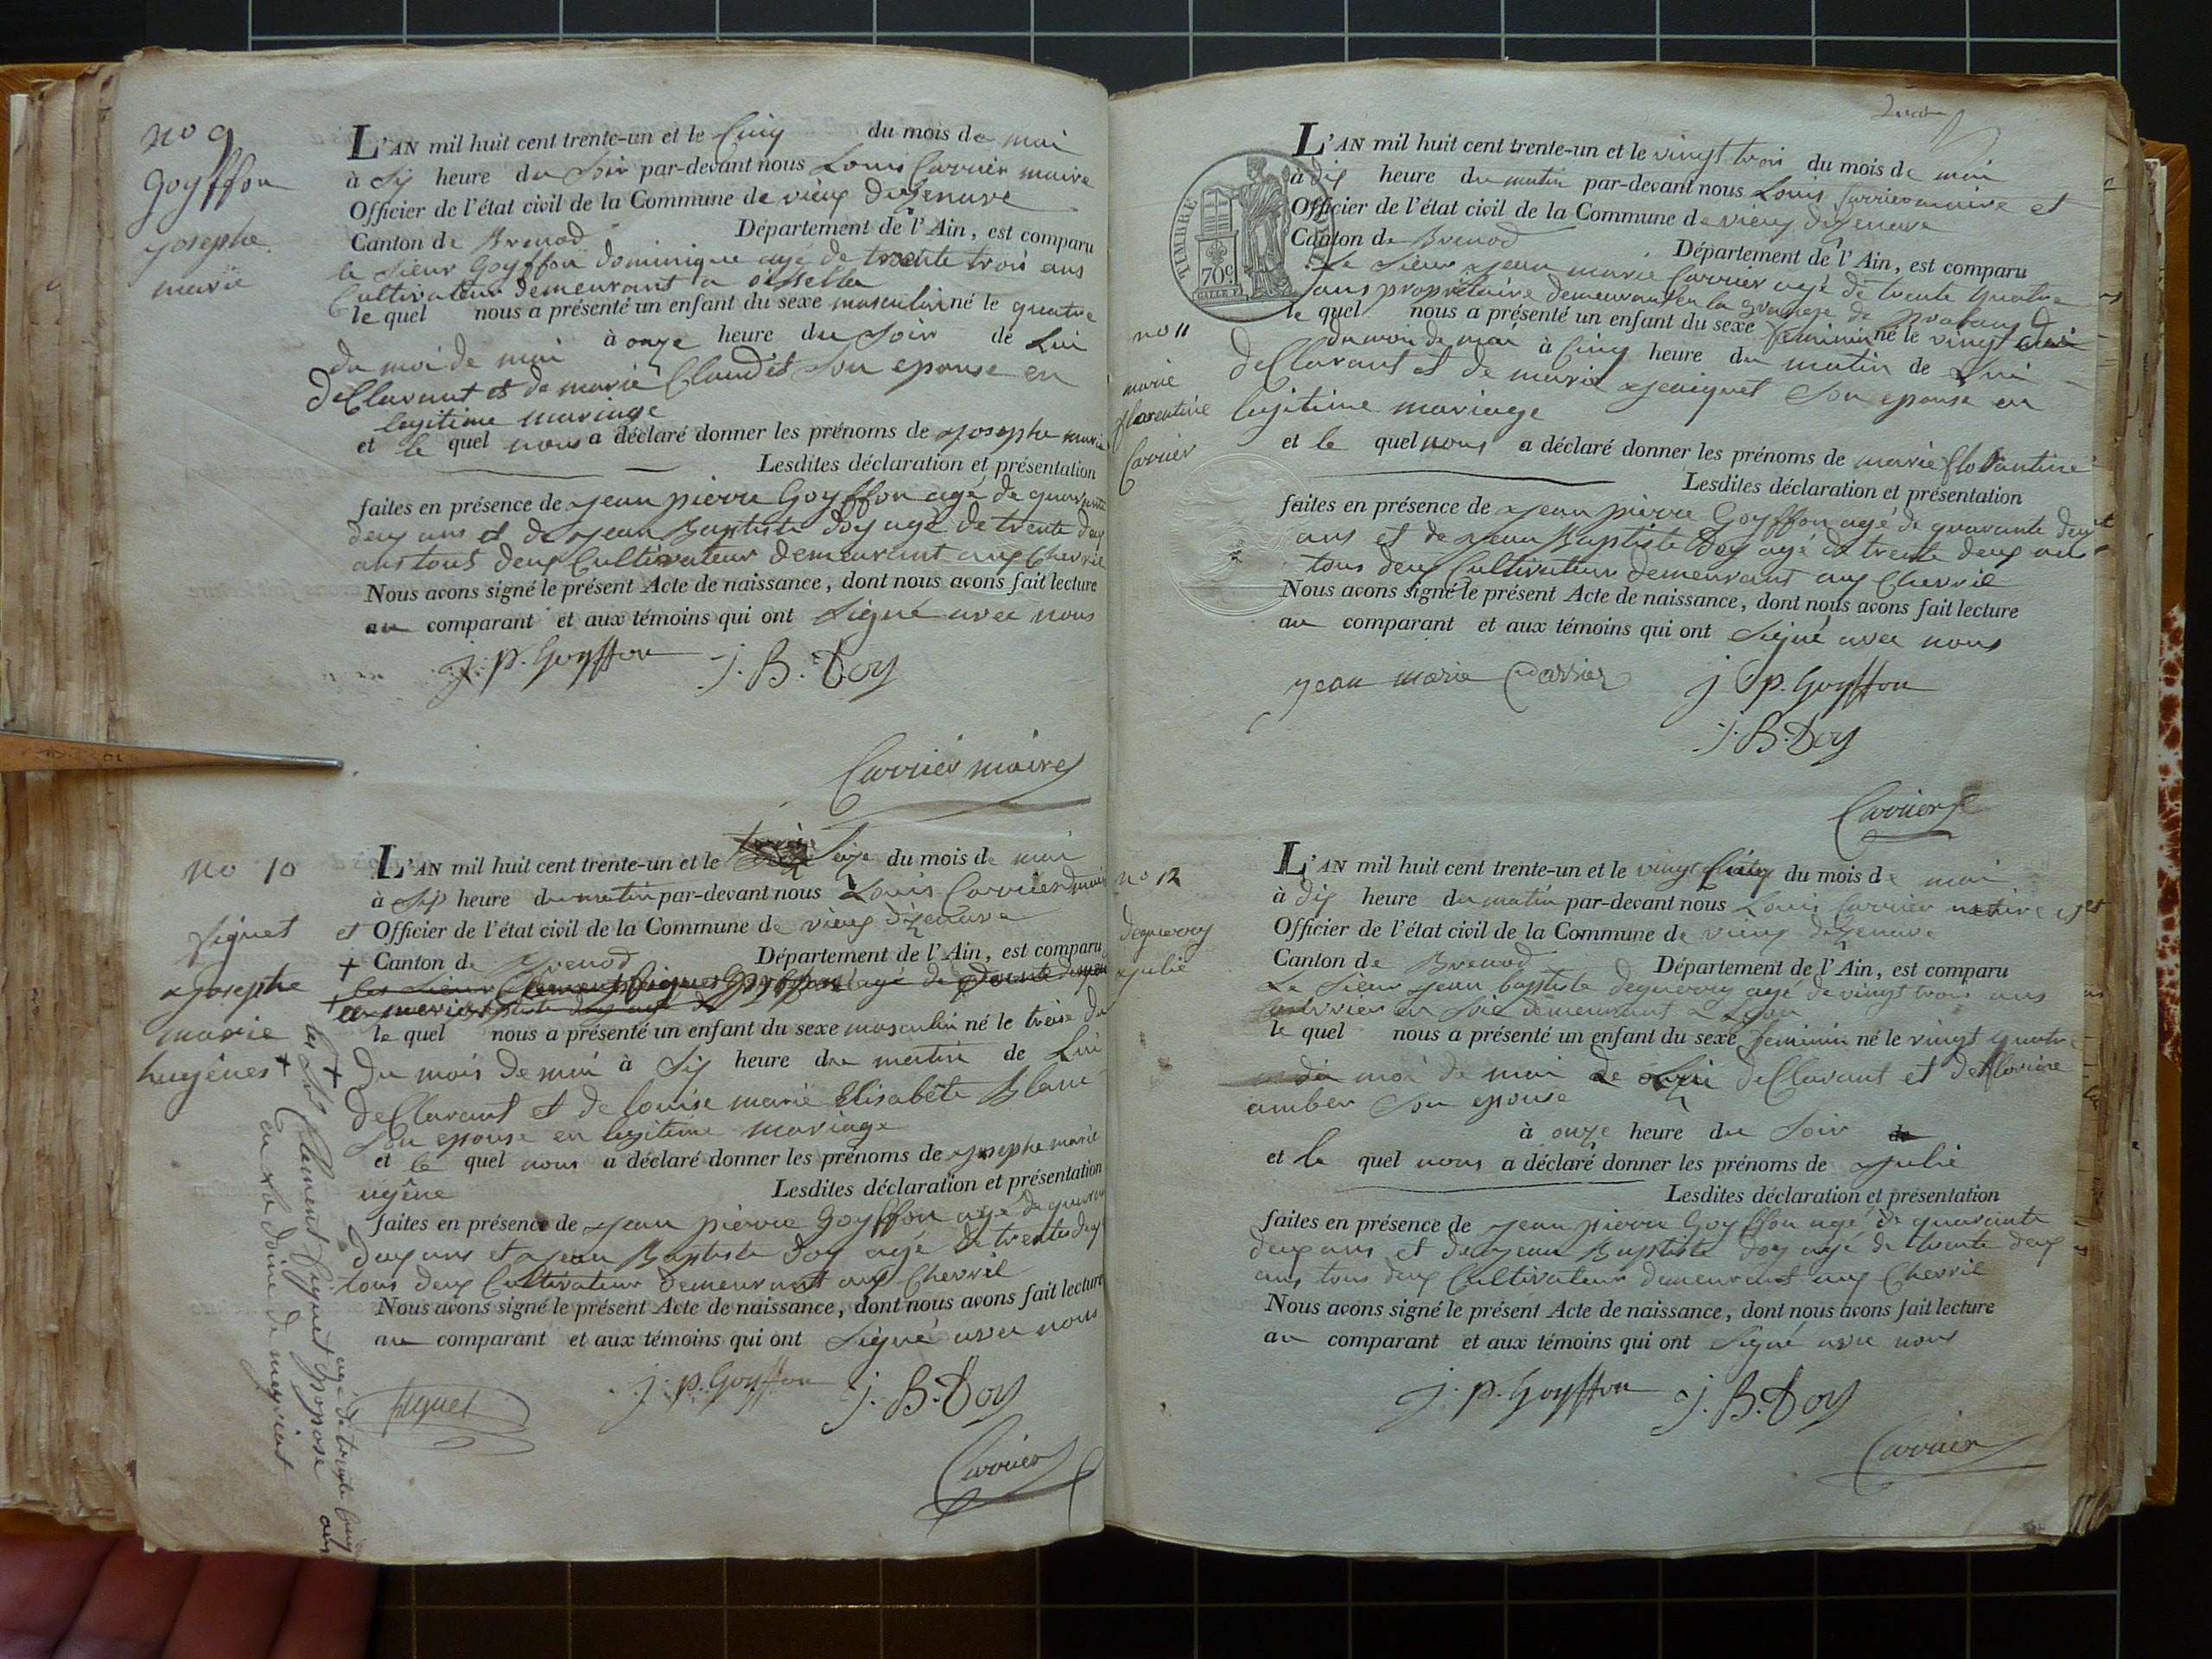 no 9
Goyffon
josephe
marie
L'AN mil huit cent trente-un et le Cinq du mois de mai
à Six heure du Soir par-devant nous Louis Carrier maire
Officier de l'état civil de la Commune de vieux dizenave
Canton de Brenod Département de l'Ain, est comparu
le Sieur Goyffon dominique agé de trente trois ans
Cultivateur demeurant a
le quel nous a présenté un enfant du sexe masculin né le quatre
du moi de mai à onze heure du Soir de Lui
deClarant et de marie Claudet Son epouse en
legitime mariage
et le quel nous a déclaré donner les prénoms de josephe marie
Lesdites déclaration et présentation
faites en présence de jean pierre Goyffon agé de quarante
deux ans et de jean Baptiste Doy agé de trente deux
ans tous deux Cultivateur demeurant aux Chevril
Nous avons signé le présent Acte de naissance, dont nous avons fait lecture
au comparant et aux témoins qui ont Signé avec nous
j. p. Goyffon j. B. Doy
Carrier maire
no 10
figuet
josephe
marie
hugênes +
L'AN mil huit cent trente-un et le Seize du mois de mai
à Sip heure du matin par-devant nous Louis Carrier maire
et Officier de l'état civil de la Commune de vieux dizenave
+ Canton de Brenod Département de l'Ain, est comparu
le quel nous a présenté un enfant du sexe masculin né le treise du
du mois de mai à Six heure du matin de Lui
deClarant et de louise marie Elisabête Blanc
Son epouse en legitime mariage
et le quel nous a déclaré donner les prénoms de josephe marie
ugêne Lesdites déclaration et présentation
faites en présence de jean pierre Goyffon agé de quarante
deux ans et jean Baptiste Doy agé de trente deux
tous deux Cultivateur demeurant aux Chevril
Nous avons signé le présent Acte de naissance, dont nous avons fait lecture
au comparant et aux témoins qui ont Signé avec nous
figuet j. p. Goyffon j. B. Doy
Carrier
+ les Sr Clement figuet proposé
agé de trente Cinq ans
au la doine de meyriat
TIMBRE
70c
L'AN mil huit cent trente-un et le vingt trois du mois de mai
à dix heure du matin par-devant nous Louis Carrier maire et
Officier de l'état civil de la Commune de vieux dizenave
Canton de Brenod Département de l'Ain, est comparu
Le Sieur jean marie Carrier agé de trente quatre
ans propriétaire demeurant en la grange de
le quel nous a présenté un enfant du sexe feminin né le vingt
du moi de mai à Cinq heure du matin de Lui
no 11
marie
florentine
Carrier
deClarant et de marie jaiquet Son epouse en
legitime mariage
et le quel nous a déclaré donner les prénoms de marie florantine
Lesdites déclaration et présentation
faites en présence de jean pierre Goyffon agé de quarante deux
ans et de jean Baptiste Doy agé de trente deux ans
tous deux Cultivateur demeurant aux Chevril
Nous avons signé le présent Acte de naissance, dont nous avons fait lecture
au comparant et aux témoins qui ont Signé avec nous
jean marie Carrier j p. Goyffon
j. B. Doy
Carrier
no 12
deguerry
julie
L'AN mil huit cent trente-un et le vingt Cinq du mois de mai
à dix heure du matin par-devant nous Louis Carrier maire et
Officier de l'état civil de la Commune de vieux dizenave
Canton de Brenod Département de l'Ain, est comparu
Le Sieur jean baptiste deguerry agé de vingt trois ans
ouvrier en Soie demeurant a Lyon
le quel nous a présenté un enfant du sexe feminin né le vingt quatre
du moi de mai de Lui deClarant et de floriene
amber Son epouse
à onze heure du Soir
et le quel nous a déclaré donner les prénoms de julie
Lesdites déclaration et présentation
faites en présence de jean pierre Goyffon agé de quarante
deux ans et de jean Baptiste Doy agé de trente deux
ans tous deux Cultivateur demeurant aux Chevril
Nous avons signé le présent Acte de naissance, dont nous avons fait lecture
au comparant et aux témoins qui ont Signé avec nous
j. p. Goyffon j. B. Doy
Carrier